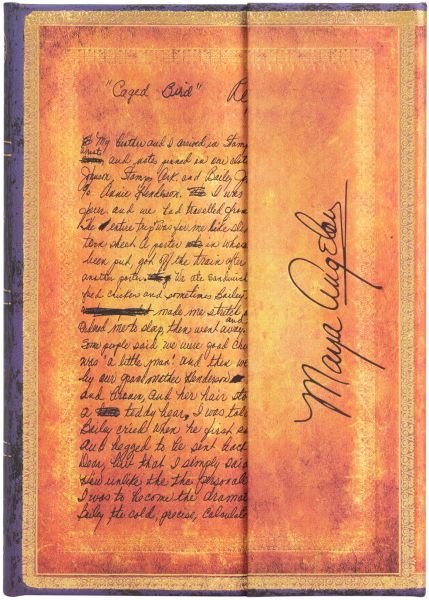 "Caged Bird" Re
My brother and I arrived in Stam
and notes pinned in our
Johnson, Stamps Ark. and Bailey J
c/o. Annie Henderson. I was
three and we had travelled from
The entire trip was for me like
torn sheet. A porter in whose
been put, got off the train after
another porter We ate sandwiches
fried chicken and sometimes Bailey
make me stretch
and
me to sleep, then went away.
Some people said we were good
was 'a little man' and then we
by our grandmother Henderson
and brown, and her hair
a teddy bear, I was told
Bailey cried when he first
and begged to be sent back
Dear, but that I simply said
How unlike the the personali
I was to become the drama
Bailey the cold, precise, calculat
Maya Angelou